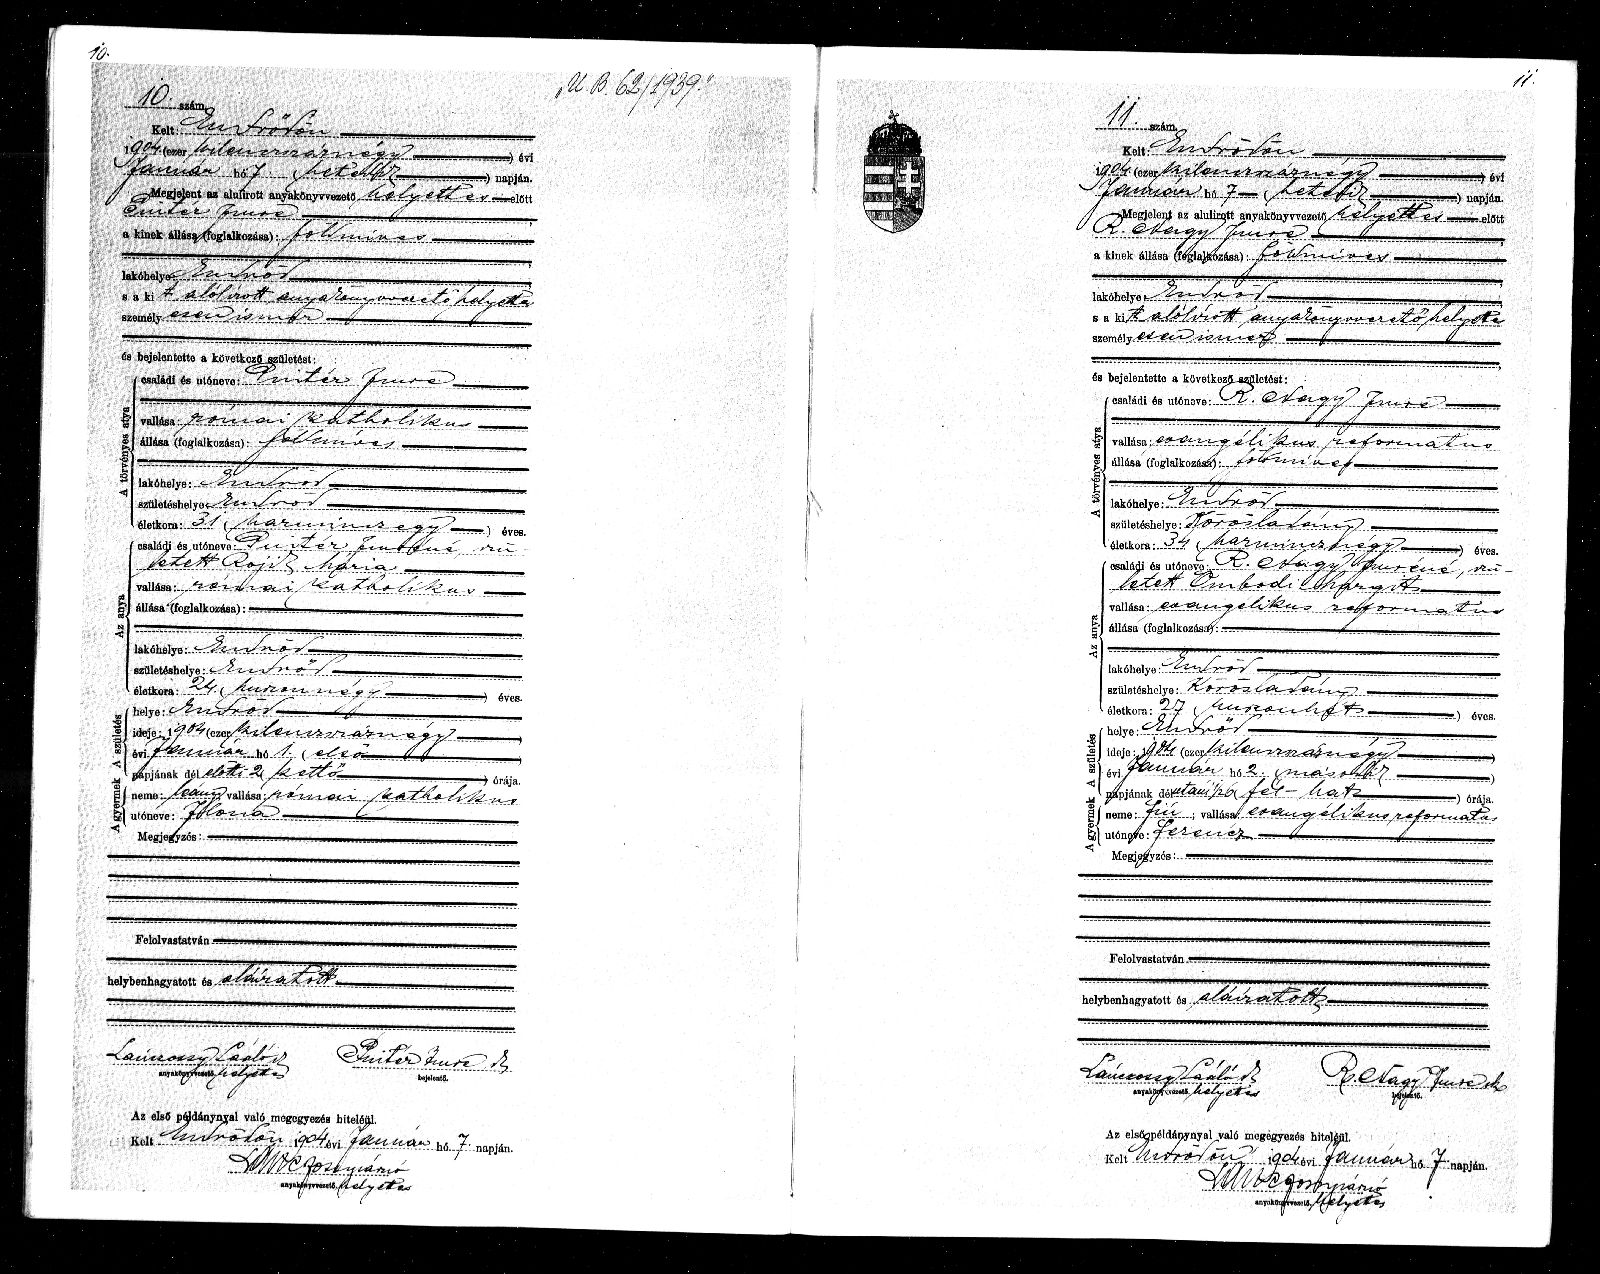 10.
„U. B. 62/1939."
10 szám.
Kelt: Endrődön
1904 (ezer kilenczszáznégy) évi
Január hó 7 (hetedik) napján.
Megjelent az alulirott anyakönyvvezető helyettes előtt
Pintér Imre
a kinek állása (foglalkozása): földmíves
lakóhelye: Endrőd
s a kit alólirott anyakönyvvezető helyettes
személyesen ismer
és bejelentette a következő születést:
A törvényes atya
családi és utóneve: Pintér Imre
vallása: római katholikus
állása (foglalkozása): földmíves
lakóhelye: Endrőd
születéshelye: Endrőd
életkora: 31 (harminczegy) éves.
Az anya
családi és utóneve: Pintér Imréné, szü-
letett Rojik Mária
vallása: római katholikus
állása (foglalkozása):
lakóhelye: Endrőd
születéshelye: Endrőd
életkora: 24. huszonnégy) éves.
A gyermek A születés
helye: Endrőd
ideje: 1904 (ezer kilenczszáznégy)
évi Január hó 1. (első)
napjának dél előtti 2 kettő) órája.
neme: leány vallása: római katholikus
utóneve: Ilona
Megjegyzés:
Felolvastatván
helybenhagyatott és aláiratott
Pintér Imre sk
anyakönyvvezető helyettes
bejelentő.
Az első példánynyal való megegyezés hiteléül.
Kelt Endrődön 1904 évi Január hó 7 napján.
anyakönyvvezető helyettes
11.
11. szám.
Kelt: Endrődön
1904 (ezer kilenczszáznégy) évi
Január hó 7 (hetedik) napján.
Megjelent az alulirott anyakönyvvezető helyettes előtt
R. Nagy Imre
a kinek állása (foglalkozása): földmíves
lakóhelye: Endrőd
s a kit alólirott anyakönyvvezető helyettes
személyesen ismer
és bejelentette a következő születést:
A törvényes atya
családi és utóneve: R. Nagy Imre
vallása: evangélikus reformatus
állása (foglalkozása): földmíves
lakóhelye: Endrőd
születéshelye: Körösladány
életkora: 34 (harmincznégy) éves.
Az anya
családi és utóneve: R. Nagy Imréné, szü-
letett Ombodi Margit
vallása: evangélikus reformatus
állása (foglalkozása):
lakóhelye: Endrőd
születéshelye: Körösladány
életkora: 27 huszonhét) éves.
A gyermek A születés
helye: Endrőd
ideje: 1904 (ezer kilenczszáznégy
évi Január hó 2. második)
napjának dél utáni ½6 fél-hat) órája.
neme: fiú; vallása evangélikus reformatus
utóneve: Ferencz
Megjegyzés:
Felolvastatván
helybenhagyatott és aláiratott
R. Nagy Imre sk
anyakönyvvezető helyettes
bejelentő.
Az első példánynyal való megegyezés hiteléül.
Kelt Endrődön 1904 évi Január hó 7 napján.
anyakönyvvezető helyettes